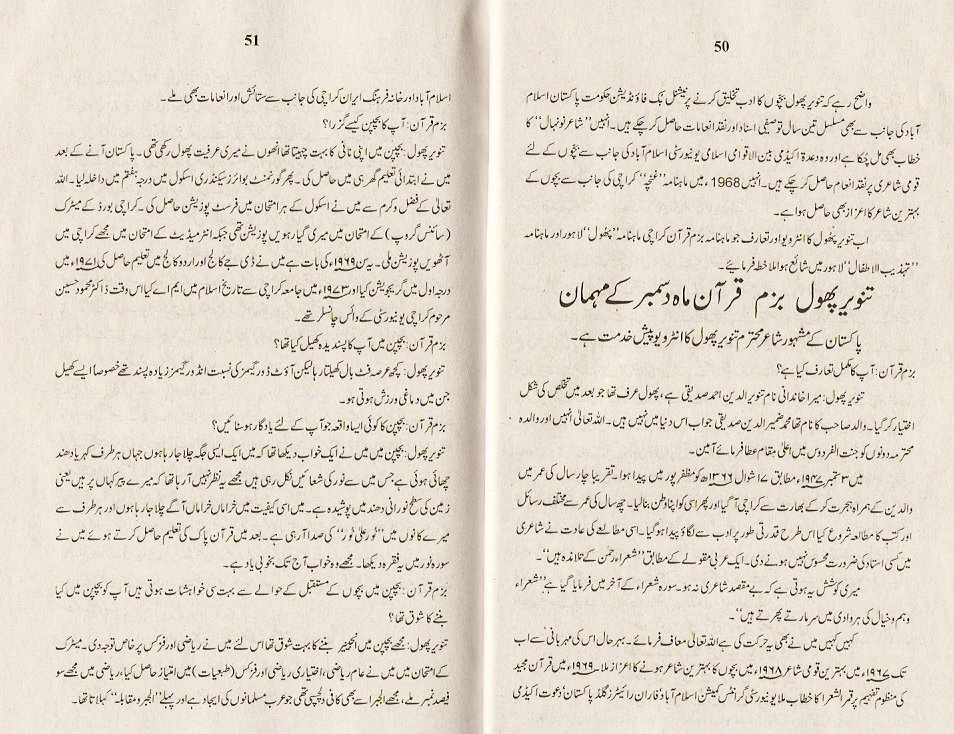 50
واضح رہے کہ تنویر پھول بچوں کا ادب تخلیق کرنے پر نیشنل بُک فاؤنڈیشن حکومت پاکستان اسلام
آباد کی جانب سے بھی مسلسل تین سال توصیفی اسناد اور نقد انعامات حاصل کر چکے ہیں۔ انہیں ''شاعرِ نونہال'' کا
خطاب بھی مل چُکا ہے اور وہ دعوۃ اکیڈمی بین الاقوامی اسلامی یونیورسٹی اسلام آباد کی جانب سے بچوں کے لئے
قومی شاعری پر نقد انعام حاصل کر چکے ہیں۔ انہیں 1968ء میں ماہنامہ ''غنچہ'' کراچی کی جانب سے بچوں کے
بہترین شاعر کا اعزاز بھی حاصل ہوا ہے۔
اب تنویر پُھول کا انٹرویو اور تعارف جو ماہنامہ بزمِ قرآن کراچی ماہنامہ ''پُھول'' لاہور اور ماہنامہ
''تہذیب الاطفال'' لاہور میں شائع ہوا ملاخطہ فرمائیے۔
تنویر پھول بزم قرآن ماہ دسمبر کے مہمان
پاکستان کے مشہور شاعر محترم تنویر پھول کا انٹرویو پیش خدمت ہے۔
بزم قرآن: آپ کا مکمل تعارف کیا ہے؟
تنویر پھول: میرا خاندانی نام تنویر الدین احمد صدیقی ہے، پھول عرف تھا جو بعد میں تخلص کی شکل
اختیار کر گیا۔ والد صاحب کا نام تھا محمد ضمیر الدین صدیقی جو اب اس دنیا میں نہیں ہیں۔ اللہ تعالیٰ انہیں اور والدہ
محترمہ دونوں کو جنت الفردوس میں اعلیٰ مقام عطا فرمائے آمین۔
میں ۳ ستمبر ۱۹۴۷ء مطابق ۱۷ شوال ۱۳۶۶ھ کو مظفر پور میں پیدا ہوا۔ تقریبا چار سال کی عمر میں
والدین کے ہمراہ ہجرت کر کے بھارت سے کراچی آ گیا اور پھر اسی کو اپنا وطن بنا لیا۔ چھ سال کی عمر سے مختلف رسائل
اور کتب کا مطالعہ شروع کیا اس طرح قدرتی طور پر ادب سے لگاؤ پیدا ہو گیا۔ اسی مطالعے کی عادت نے شاعری
میں کسی استاد کی ضرورت محسوس نہیں ہونے دی۔ ایک عربی مقولے کے مطابق ''شعراء رحمٰن کے تلامذہ ہیں''۔
میری کوشش یہ ہوتی ہے کہ بے مقصد شاعری نہ ہو۔ سورہ شعراء کے آخر میں فرمایا گیا ہے ''شعراء
وہم و خیال کی ہر وادی میں سر مارتے پھرتے ہیں''۔
کہیں کہیں میں نے بھی یہ حرکت کی ہے اللہ تعالیٰ معاف فرمائے۔ بہرحال اس کی مہربانی سے اب
تک ۱۹۶۷ء میں بہترین قومی شاعر ۱۹۶۸ء میں بچوں کا بہترین شاعر ہونے کا اعزاز ملا۔ ۱۹۶۹ء میں قرآن مجید
کی منظوم تفہیم پر قمر الشعرا کا خطاب ملا یونیورسٹی گرانٹس کمیشن اسلام آباد فاران رائیٹرز گلڈ پاکستان دعوت اکیڈمی
51
اسلام آباد اور خانہ فرہنگ ایران کراچی کی جانب سے ستائش اور انعامات بھی ملے۔
بزم قرآن: آپ کا بچپن کیسے گزرا؟
تنویر پھول: بچپن میں اپنی نانی کا بہت چہیتا تھا اُنھوں نے میری عرفیت پھول رکھی تھی۔ پاکستان آنے کے بعد
میں نے ابتدائی تعلیم گھر ہی میں حاصل کی۔ پھر گورنمنٹ بوائز سیکنڈری اسکول میں درجہ ہفتم میں داخلہ لیا۔ اللہ
تعالیٰ کے فضل و کرم سے میں نے اسکول کے ہر امتحان میں فرسٹ پوزیشن حاصل کی۔ کراچی بورڈ کے میٹرک
(سائنس گروپ) کے امتحان میں میری گیارہویں پوزیشن تھی جبکہ انٹرمیڈیٹ کے امتحان میں مجھے کراچی میں
آٹھویں پوزیشن ملی۔ یہ سن ۱۹۶۹ء کی بات ہے میں نے ڈی جے کالج اور اردو کالج میں تعلیم حاصل کی ۱۹۷۱ء میں
درجہ اول میں گریجویشن کیا اور ۱۹۷۳ء میں جامعہ کراچی سے تاریخ اسلام میں ایم اے کیا اس وقت ڈاکٹر محمود حسین
مرحوم کراچی یونیورسٹی کے وائس چانسلر تھے۔
بزم قرآن: بچپن میں آپ کا پسندیدہ کھیل کیا تھا؟
تنویر پھول: کچھ عرصہ فٹ بال کھیلتا رہا لیکن آؤٹ ڈور گیمز کی نسبت انڈور گیمز زیادہ پسند تھے خصوصاً ایسے کھیل
جن میں دماغی ورزش ہوتی ہو۔
بزم قرآن: بچپن کا کوئی ایسا واقعہ جو آپ کے لئے یادگار ہو سنائیں؟
تنویر پھول: بچپن میں میں نے ایک خواب دیکھا تھا کہ میں ایک ایسی جگہ چلا جا رہا ہوں جہاں ہر طرف کہر یا دھند
چھائی ہوئی ہے جس میں سے نور کی شعائیں نکل رہی ہیں مجھے یہ نظر نہیں آ رہا تھا کہ میرے پیر کہاں پر ہیں یعنی
زمین کی سطح نورانی دھند میں پوشیدہ ہے۔ میں اسی کیفیت میں خراماں خراماں آگے چلا جا رہا ہوں اور ہر طرف سے
میرے کانوں میں ''نُور علیٰ نُور'' کی صدا آ رہی ہے۔ بعد میں قرآن پاک کی تعلیم حاصل کرتے ہوئے میں نے
سورہ نور میں یہ فقرہ دیکھا۔ مجھے وہ خواب آج تک بخوبی یاد ہے۔
بزم قرآن: بچپن میں بچوں کے مستقبل کے حوالے سے بہت سی خواہشات ہوتی ہیں آپ کو بچپن میں کیا
بننے کا شوق تھا؟
تنویر پھول: مجھے بچپن میں انجینیئر بننے کا بہت شوق تھا اس لئے میں نے ریاضی اور فزکس پر خاص توجہ دی۔ میٹرک
کے امتحان میں میں نے عام ریاضی، اختیاری ریاضی اور فزکس (طبعیات) میں امتیاز حاصل کیا، ریاضی میں مجھے سو
فیصد نمبر ملے، مجھے الجبرا سے بھی کافی دلچسپی تھی جو عرب مسلمانوں کی ایجاد ہے اور پہلے ''الجبر و مقابلہ'' کہلاتا تھا۔